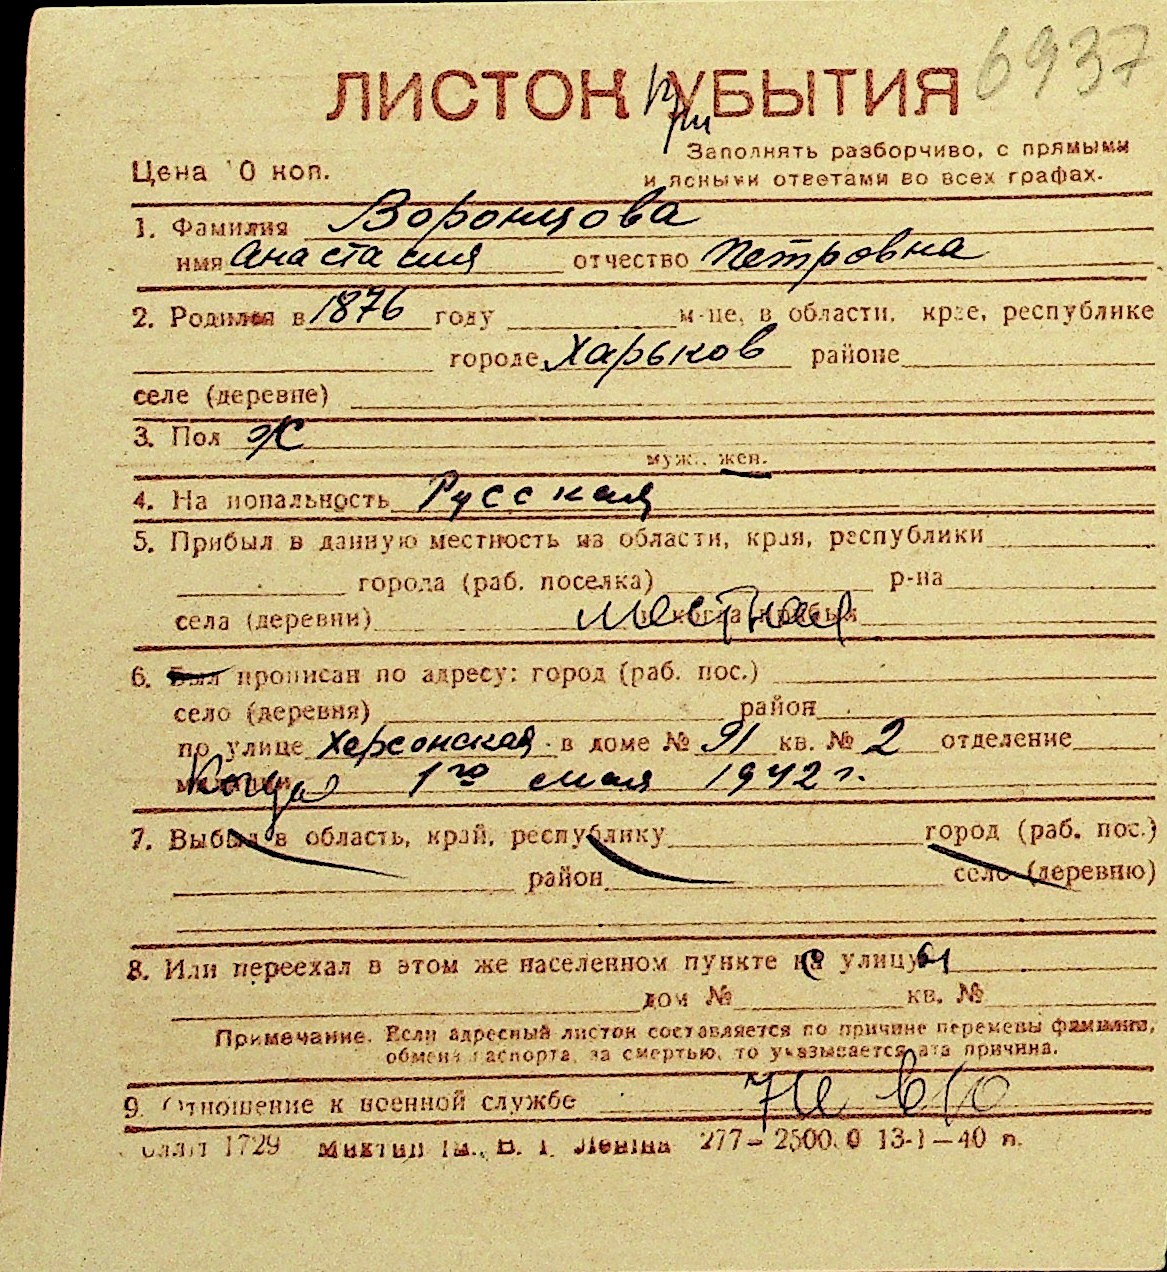 6937
ЛИСТОК при УБЫТИЯ
Заполнять разборчиво, с прямыми
Цена 10 коп.
и ясными ответами во всех графах.
1. Фамилия Воронцова
имя Анастасия отчество Петровна
2. Родился в 1876 году м-це, в области, крае, республике
городе Харьков районе
селе (деревне)
3. Пол Ж
муж., жен.
4. Национальность Русская
5. Прибыл в данную местность из области, края, республики
города (раб. поселка) р-на
села (деревни) и когда прибыл местная
6. Был прописан по адресу: город (раб. пос.)
село (деревня) район
по улице Херсонская в доме № 91 кв. № 2 отделение
милиции Когда 1го мая 1942 г.
7. Выбыл в область, край, республику город (раб. пос.)
район село (деревню)
8. Или переехал в этом же населенном пункте на улицу
дом № кв. №
Примечание. Если адресный листок составляется по причине перемены фамилии,
обмена паспорта, за смертью, то указывается эта причина.
9. Отношение к военной службе не в/о
1729 Миктип ім. В. І. Леніна 277—25000 13-I—40 п.